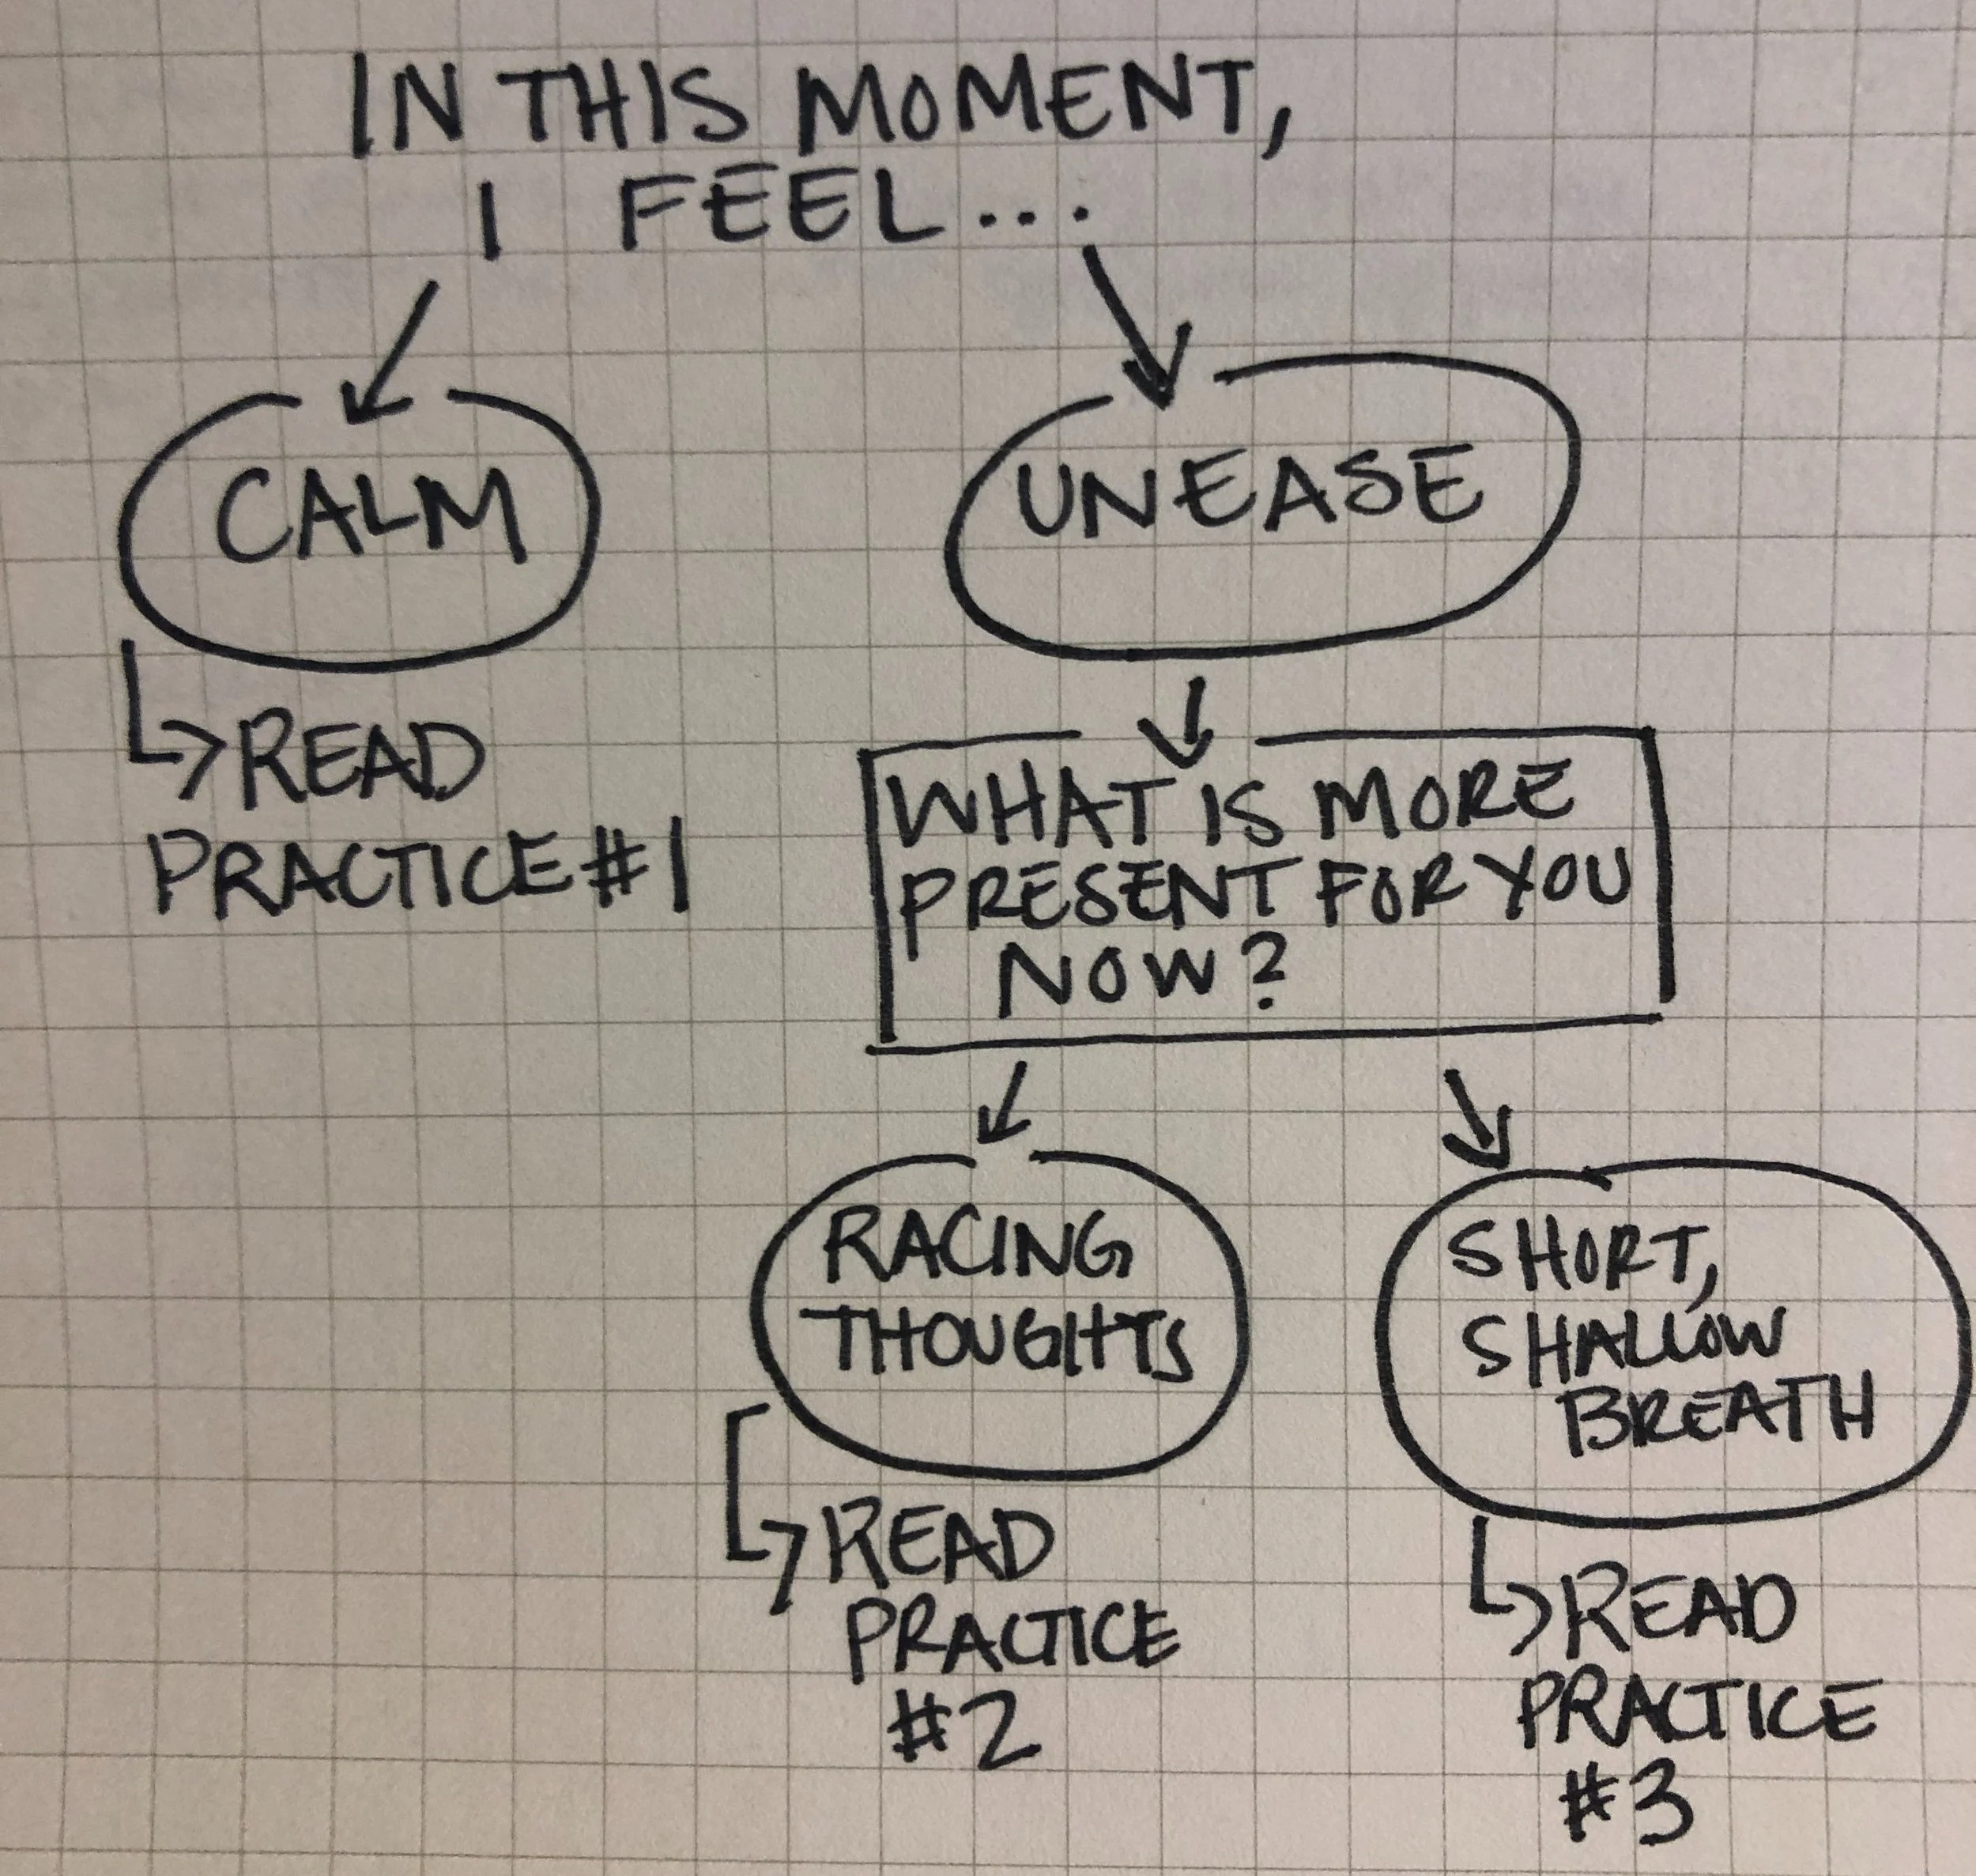 IN THIS MOMENT,
I FEEL...
CALM
READ
PRACTICE #1
UNEASE
WHAT IS MORE
PRESENT FOR YOU
NOW?
RACING
THOUGHTS
READ
PRACTICE
#2
SHORT,
SHALLOW
BREATH
READ
PRACTICE
#3